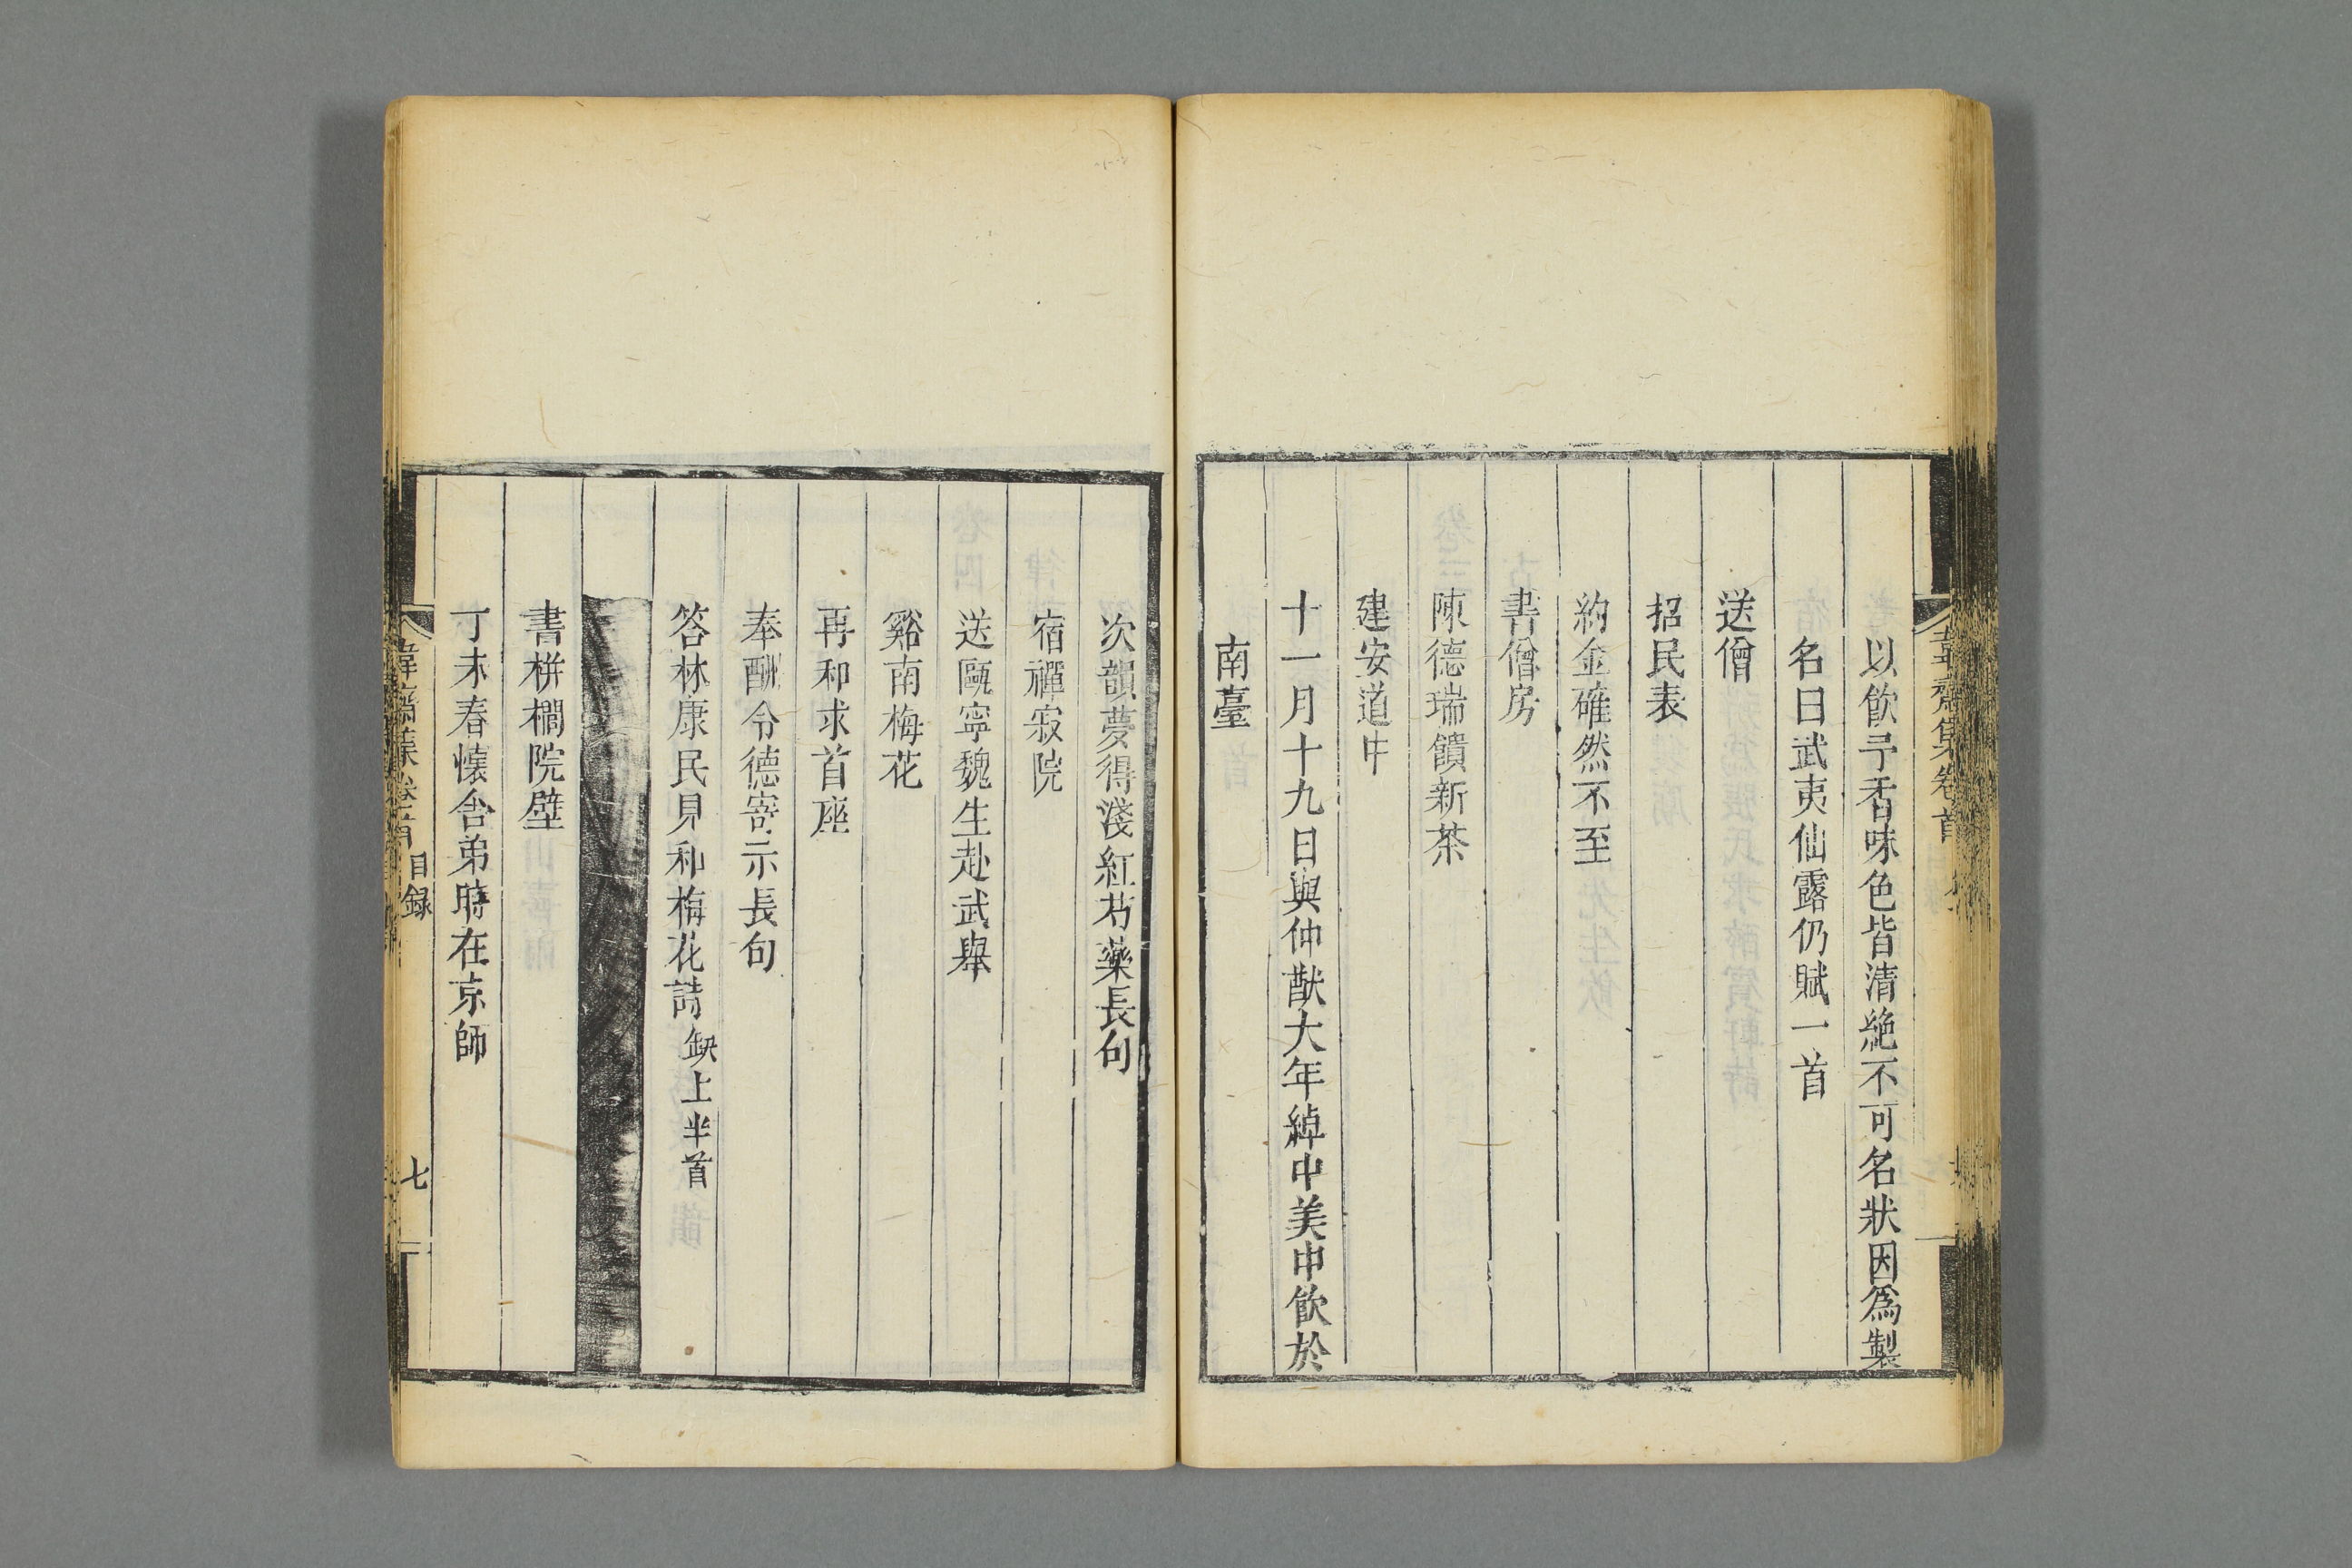 以飲予香味色皆清絶不可名狀因爲製
名曰武夷仙露仍賦一首
送僧
招民表
約金確然不至
書僧房
陳德瑞饋新茶
建安道中
十一月十九日與仲猷大年綽中美中飲於
南臺
次韻夢得淺紅芍藥長句
宿禪寂院
送甌寧魏生赴武舉
谿南梅花
再和求首座
奉酬令德寄示長句
答林康民見和梅花詩 缺上半首
書栟櫚院壁
丁未春懷舍弟時在京師
韋齋集卷首 目録 七